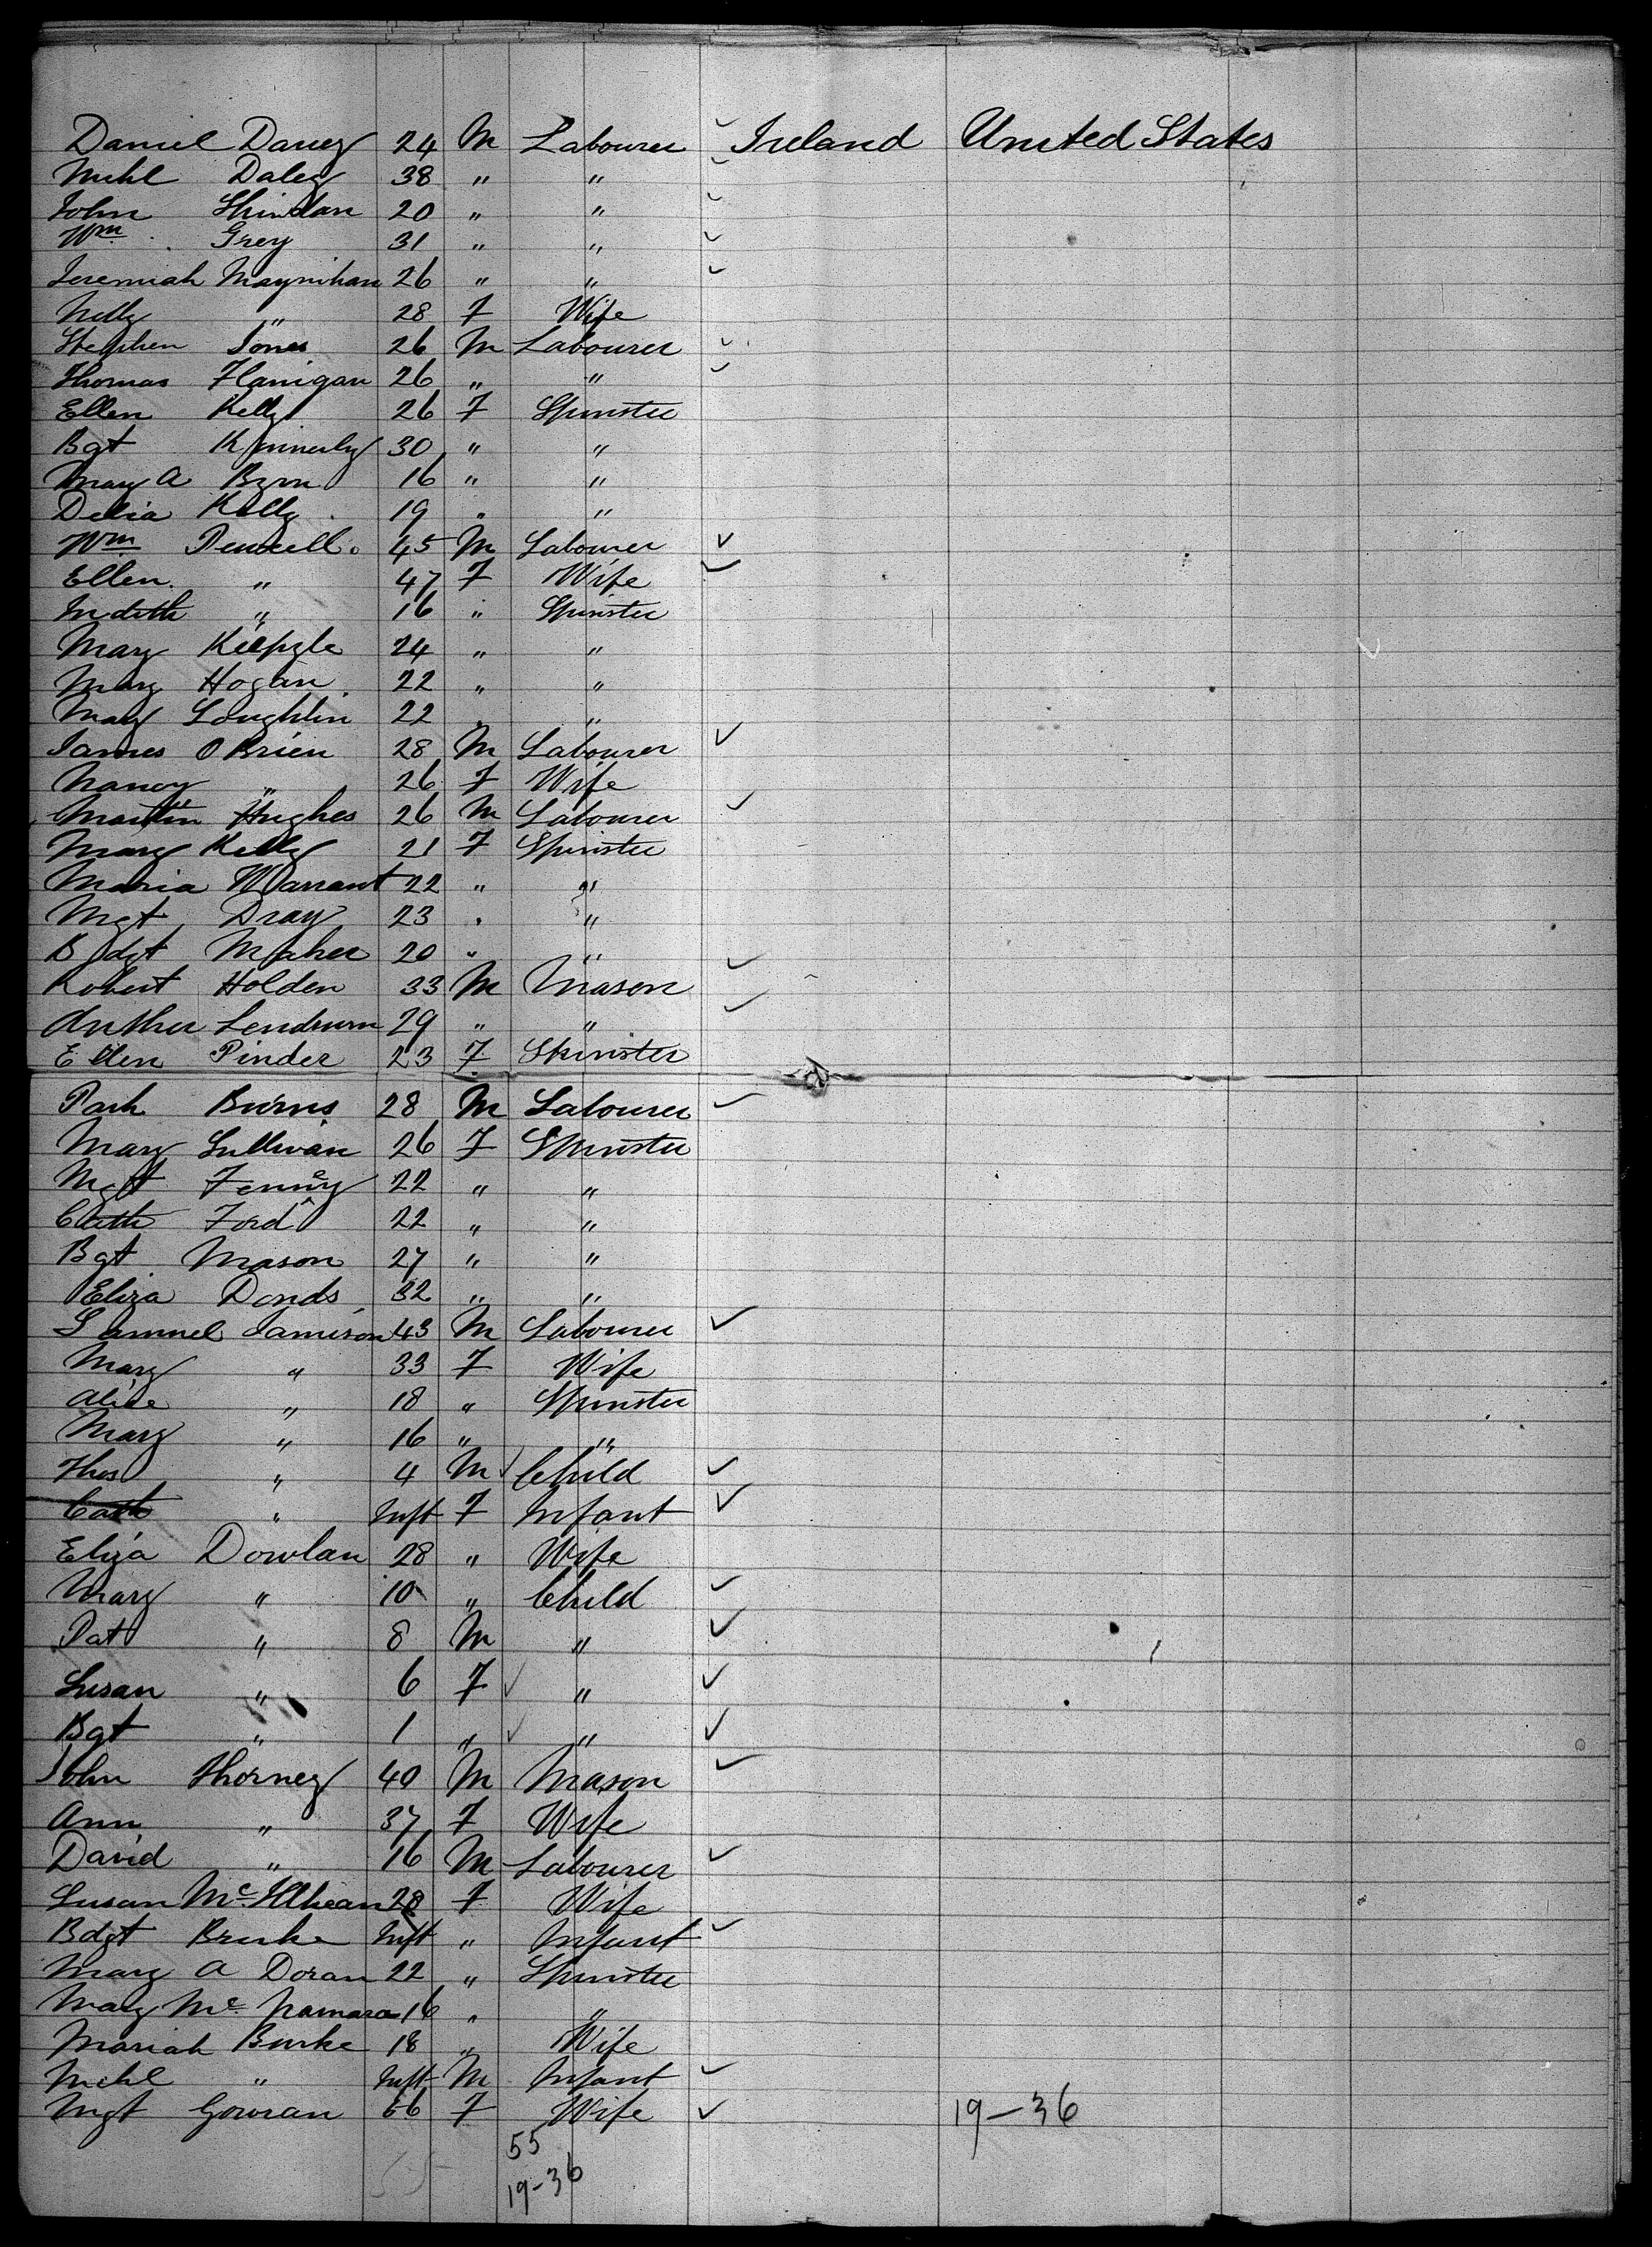 Daniel Darcy 24 M Labourer Ireland United States
Michl Daley 38 " "
John Shindan 20 " "
Wm Grey 31 " "
Jeremiah Maynihan 26 " "
Nelly " 28 F Wife
Stephen Jones 26 M Labourer
Thomas Flanigan 26 " "
Ellen Kelly 26 F Spinster
Bgt Kinnerly 30 " "
Mary A Byrn 16 " "
Delia Kelly 19 " "
Wm 45 M Labourer
Ellen " 47 F Wife
Judith " 16 " Spinster
Mary 24 " "
Mary Hogan 22 " "
Mary Loughlin 22 " "
James O Brien 28 M Labourer
Nancy " 26 F Wife
Martin Hughes 26 M Labourer
Mary Kelly 21 F Spinster
Maria Warrant 22 " "
Mgt Dray 23 " "
Bdgt Maher 20 " "
Robert Holden 33 M Mason
Arthur Lendrum 29 " "
Ellen Pinder 23 F Spinster
Patk Burns 28 M Labourer
Mary Sullivan 26 F Spinster
Mgt Fenny 22 " "
Cath Ford 22 " "
Bgt Mason 27 " "
Eliza Donds 32 " "
Samuel Jamison 43 M Labourer
Mary " 33 F Wife
Alice " 18 " Spinster
Mary " 16 " "
Thos " 4 M Child
Cath " Inft F Infant
Eliza Dowlan 28 " Wife
Mary " 10 " Child
Pat " 8 M "
Susan " 6 F "
Bgt " 1 " "
John Thorney 40 M Mason
Ann " 37 F Wife
David " 16 M Labourer
Susan Mc Ilhean 28 F Wife
Bdgt Burke Inft " Infant
Mary A Doran 22 " Spinster
Mary Mc Namara 16 " "
Mariah Burke 18 " Wife
Michl " Inft M Infant
Mgt Gowran 56 F Wife 19-36
55
19-36